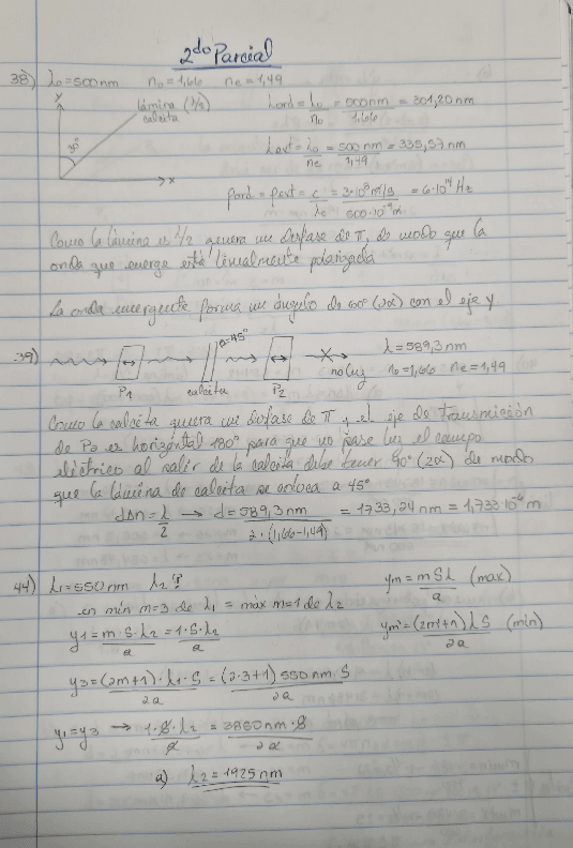 2do Parcial
38) λo=500nm no=1,66 ne=1,49
y
lámina (λ/2)
calcita
30°
x
λord=λo/no=500nm/1,66=301,20nm
λext=λo/ne=500nm/1,49=335,57nm
ford=fext=c/λo=3·10⁸m/s/500·10⁻⁹m=6·10¹⁴Hz
Como la lámina es λ/2 genera un desfase de π, de modo que la
onda que emerge está linealmente polarizada
La onda emergente forma un ángulo de 60° (2α) con el eje y
39) α=45° λ=589,3nm
P1 calcita P2 no luz no=1,66 ne=1,49
Como la calcita genera un desfase de π y el eje de transmisión
de P2 es horizontal 180° para que no pase luz el campo
eléctrico al salir de la calcita debe tener 90° (2α) de modo
que la lámina de calcita se coloca a 45°
dΔn=λ/2 → d=589,3nm/2·(1,66-1,49) = 1733,24nm = 1,733·10⁻⁶m
44) λ1=550nm λ2?
ym=mSλ/a (max)
en mín m=3 de λ1 = máx m=1 de λ2
y1=m·S·λ2/a=1·S·λ2/a
ym=(2m+1)λS/2a (min)
y3=(2m+1)·λ1·S/2a=(2·3+1)550nm·S/2a
y1=y3 → 1·S·λ2/a=3850nm·S/2a
a) λ2=1925nm